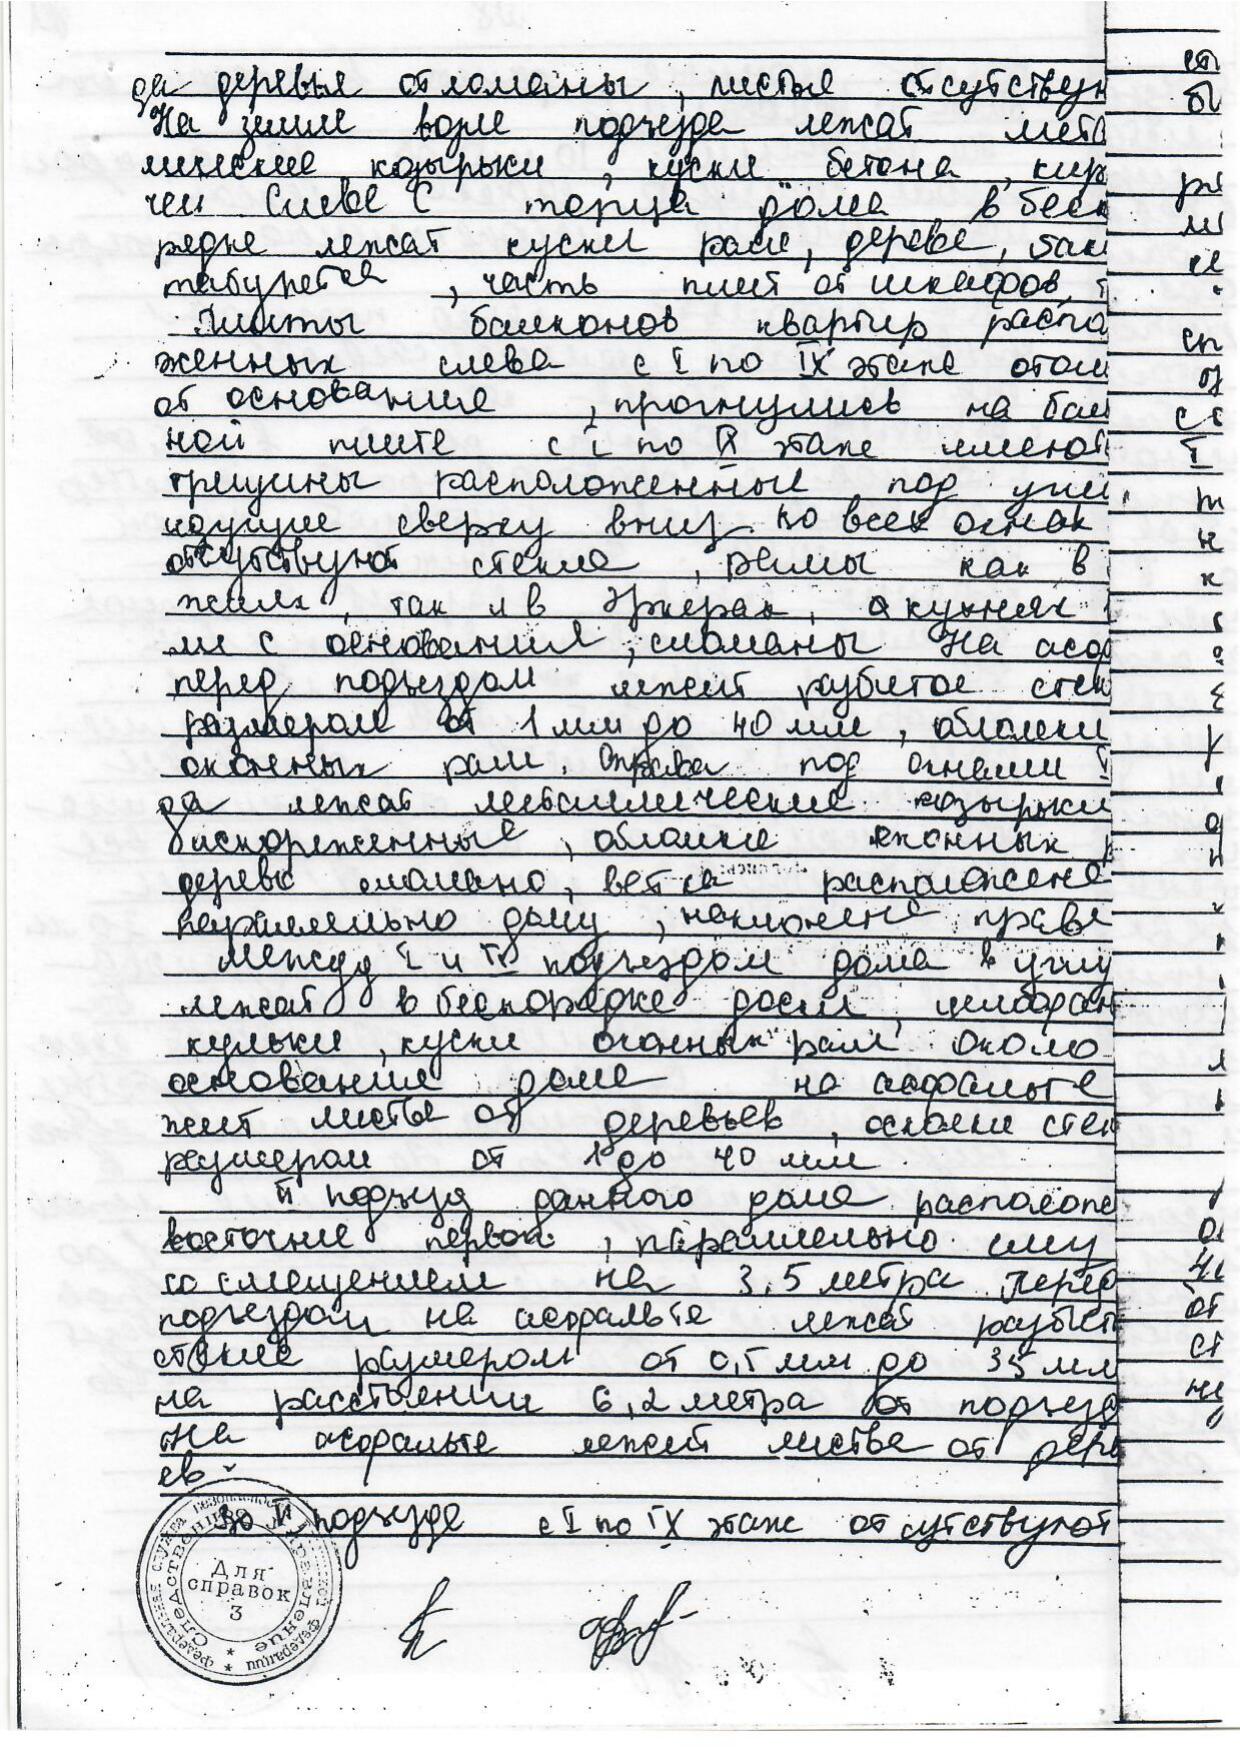 да деревья отломаны, листья отсутствую
На земле возле подъезда лежат мета
лические козырьки, куски бетона, кир
чей Слева с торца дома в бесп
рядке лежат куски рам, дерева, бан
табуретка, часть плит от шкафов, т
Плиты балконов квартир распо
женных слева с I по IX этаж отом
от основания, прогнулись на бал
ной плите с I по IX этаж имеют
трещины расположенные под угл
идущие сверху вниз. Во всех окнах
отсутствуют стекла, рамы как в
жилх, так и в эркерах, а кухнях
ми с основания, сломаны На асф
перед подъездом лежит разбитое стек
размером от 1 мм до 40 мм, обломки
оконных рам. Справа под окнами I
да лежат металлические козырьки
искореженные, обломки оконных р
дерево сломано, ветка расположена
параллельно дому, наклонена право
Между I и II подъездом дома в углу
лежат в беспорядке доски, целлофан
кульки, куски оконных рам около
основания дома на асфальте
жит листва от деревьев, осколки стек
размером от 1 до 40 мм
II подъезд данного дома располож
восточнее первого, параллельно ему
со смещением на 3,5 метра Перед
подъездом на асфальте лежат разбит
стекла размером от 0,5 мм до 35 мм
на расстоянии 6,2 метра от подъезд
На асфальте лежит листва от дерев
ев.
Во II подъезде с I по IX этаж отсутствуют
Федеральная служба безопасности Российской Федерации
Следственное управление
Для
справок
3